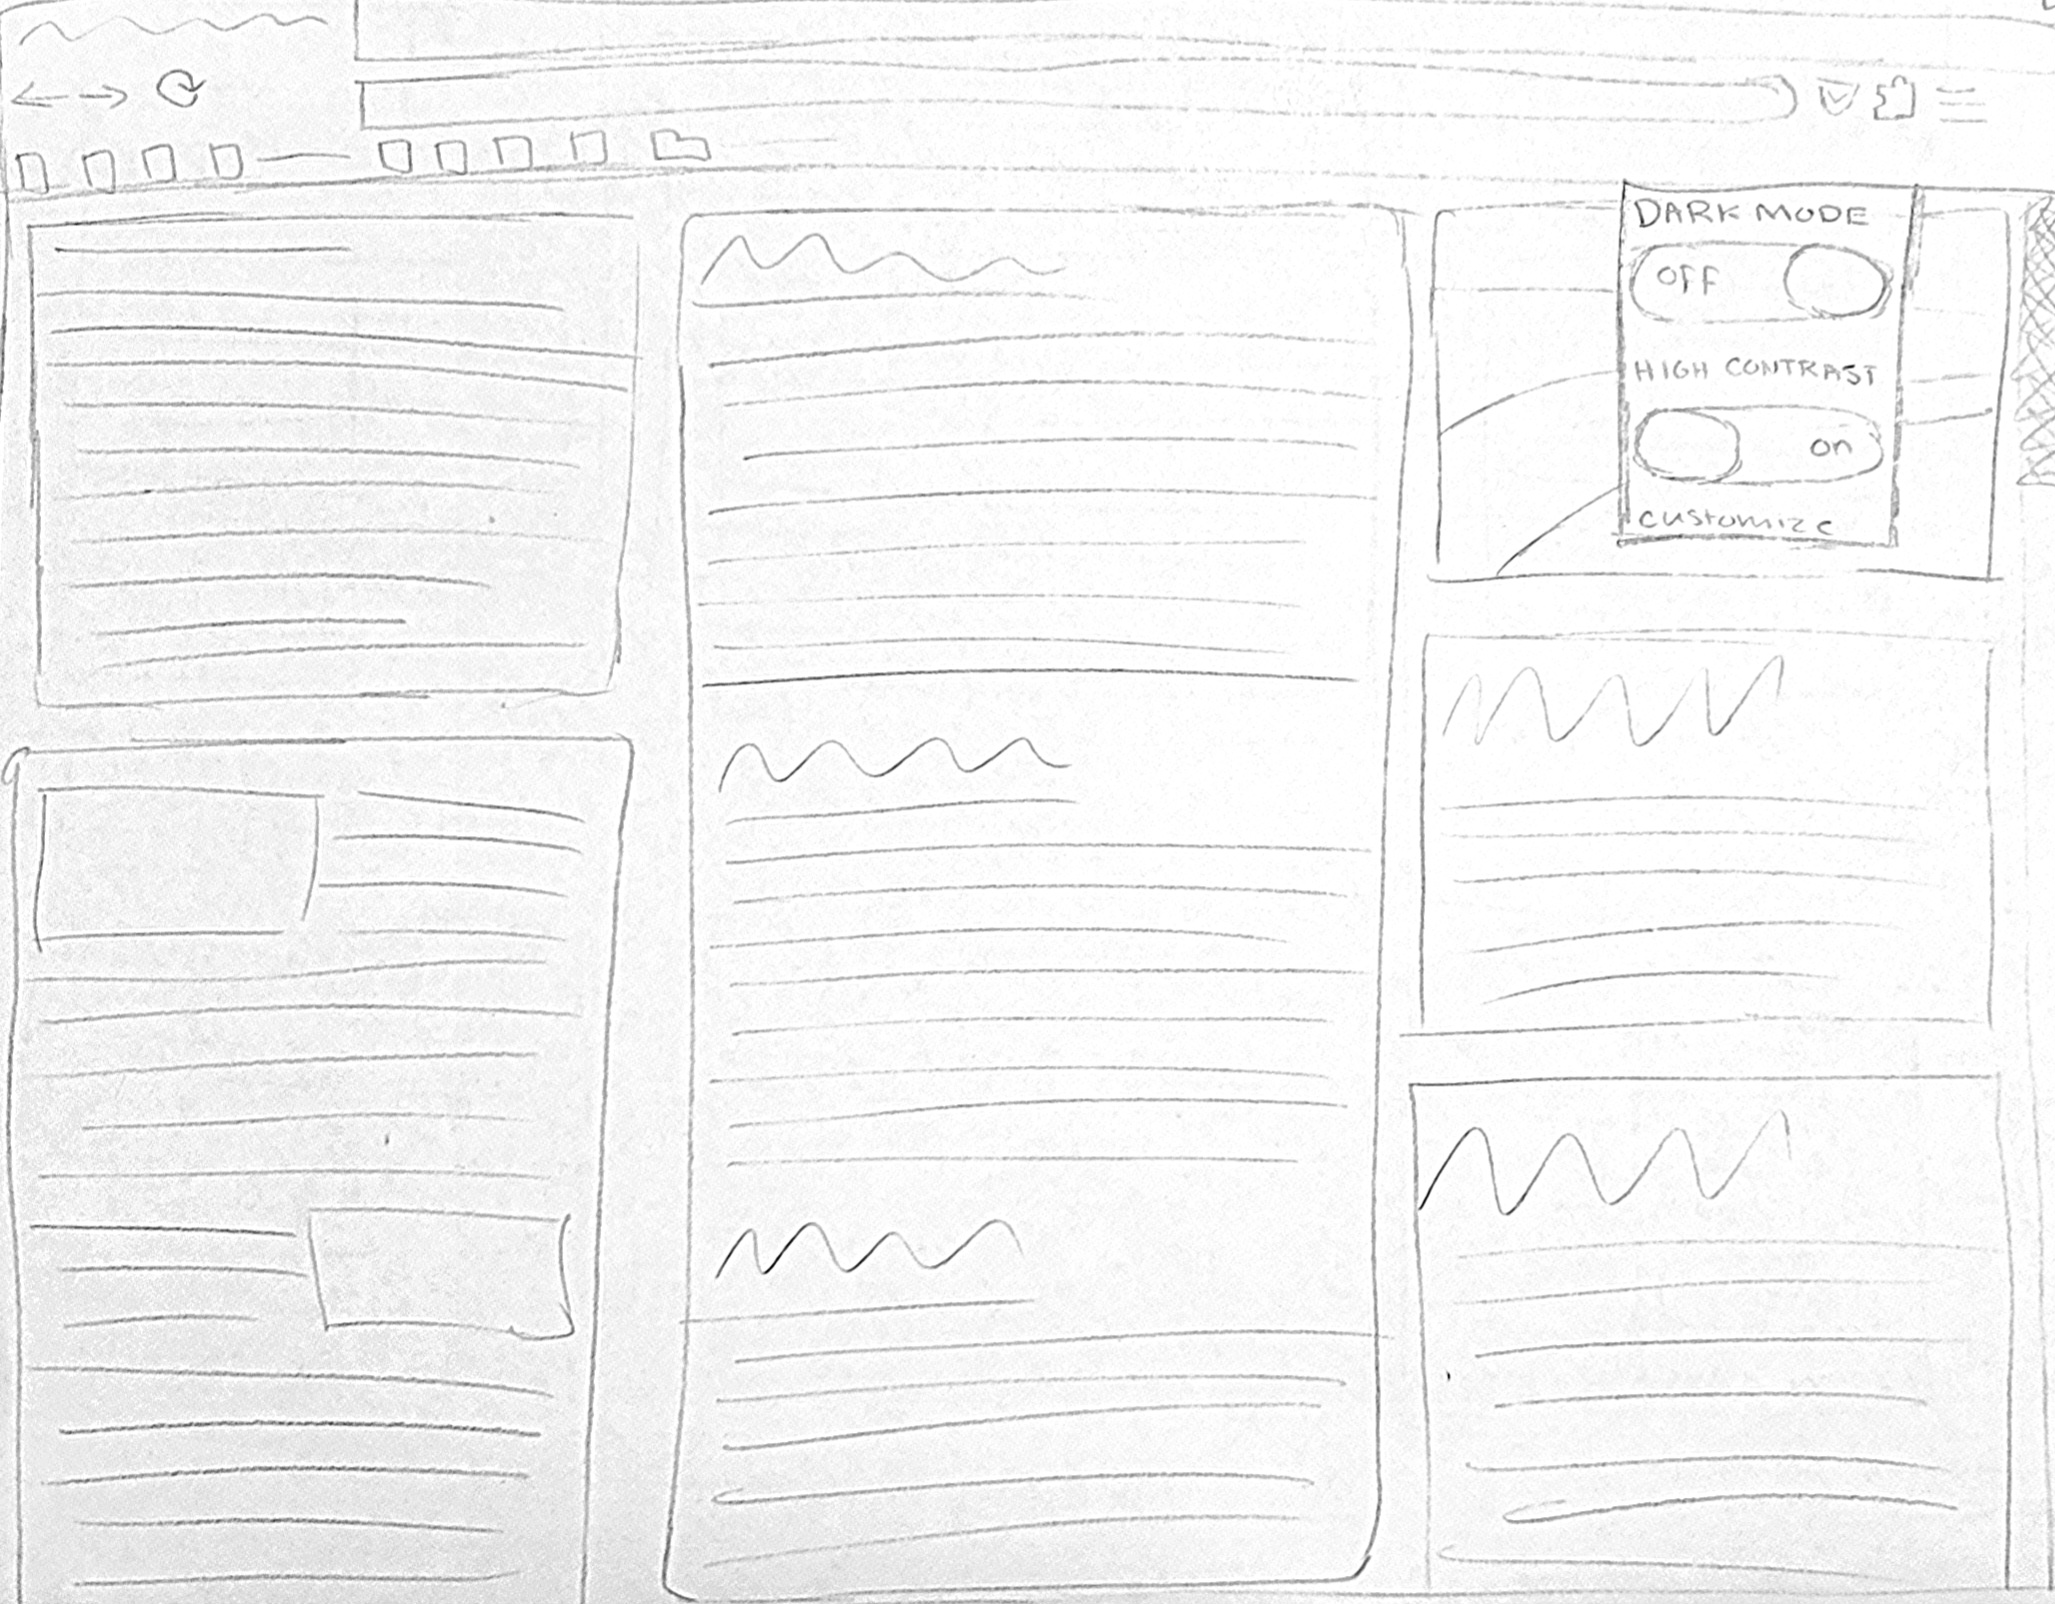 DARK MODE
OFF
HIGH CONTRAST
on
customize